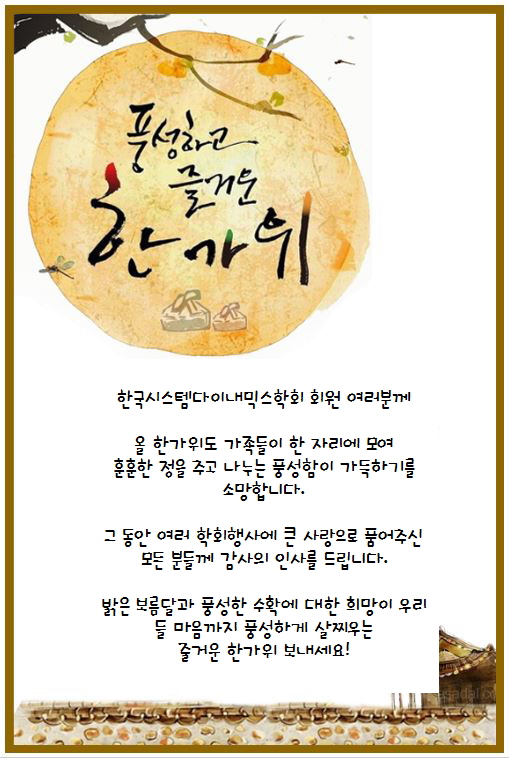 풍성하고
즐거운
한가위
한국시스템다이내믹스학회 회원 여러분께
올 한가위도 가족들이 한 자리에 모여
훈훈한 정을 주고 나누는 풍성함이 가득하기를
소망합니다.
그 동안 여러 학회행사에 큰 사랑으로 품어주신
모든 분들께 감사의 인사를 드립니다.
밝은 보름달과 풍성한 수확에 대한 희망이 우리
들 마음까지 풍성하게 살찌우는
즐거운 한가위 보내세요!